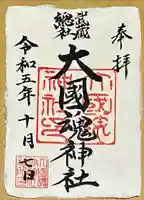 奉拝
武蔵
總社
大國魂神社
令和五年十月
七日